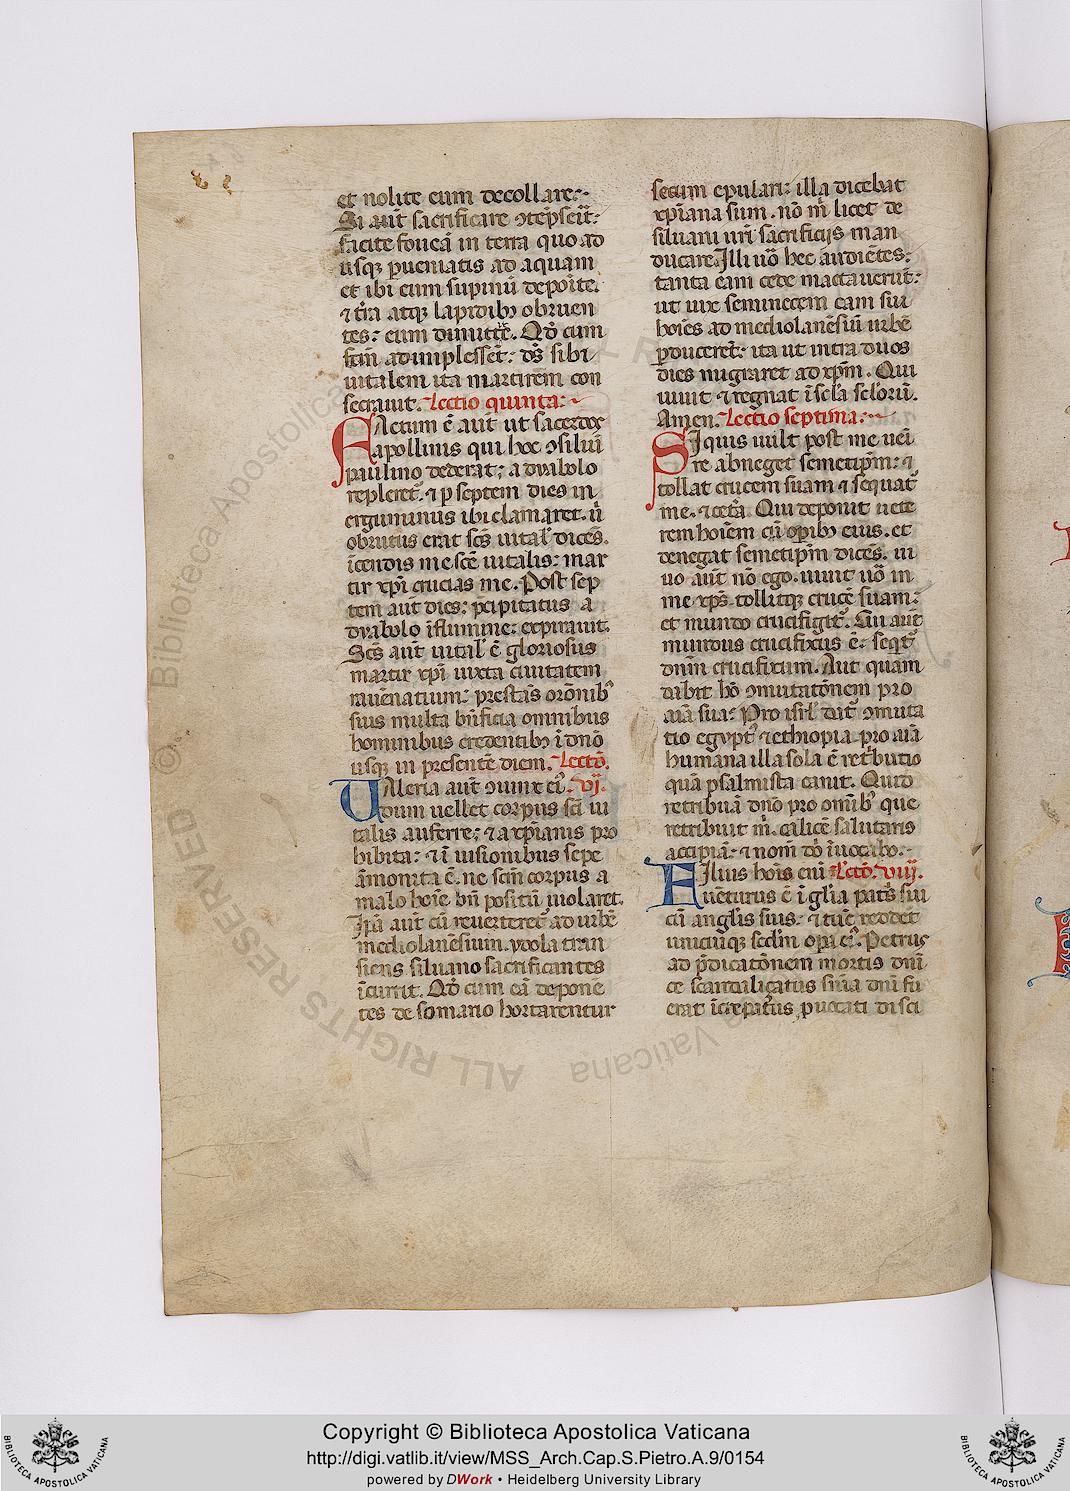 et nolite eum decollare:·
Si aut̄ sacrificare ↄtēpserit̄:
facite foueā in terra quo ad
usqꝫ pueniatis ad aquam
et ibi eum supinū deponite.
⁊ tr̄a atqꝫ lapidibꝫ obruen
tes: eum dimittite. Qd̄ cum
fcm̄ adimplessēt: dn̄s sibi
uitalem ita martirem con
secrauit. Lectio quinta:
Factum ē aut̄ ut sacerdos
apollinis qui hoc ↄsiliū
paulino dederat: a dyabolo
repleret̄. ⁊ p septem dies in
erguminus ibi clamaret. u̅
obrutus erat scs̄ uital̄ dicēs.
īcendis me scē uitalis: mar
tir xpi̅ crucias me. Post sep
tem aut̄ dies: p̄cipitatus a
dyabolo ī flumine: expirauit.
Scs̄ aut̄ uital̄ ē gloriosus
martir xpi̅ iuxta ciuitatem
rauēnatium: prestās orōnibꝫ
suis multa bn̄ficia omnibus
hominibus credentibꝫ ī dn̄o
usqꝫ in presentē diem. Lectō.
Valeria aut̄ ↄiunx ei᷒. vi.
dum uellet corpus sc̄i ui
talis auferre: ⁊ a xp̄ianis pro
hibita: ⁊ ī uisionibus sepe
āmonita ē. ne scm̄ corpus a
malo hoīe bn̄ positū uiolaret.
Ip̄a aut̄ cū reuerteret̄ ad urbē
mediolanēsium. ydola tran
siens siluano sacrificantes
īcurrit. Qd̄ cum eā depone
tes de somario hortarentur
secum epulari: illa dicebat
xp̄iana sum. nō m̄ licet de
siluani ur̄i sacrificijs man
ducare. Illi uo̅ hec audiētes:
tanta eam cede mactauerūt:
ut uix seminecem eam sui
hoīes ad mediolanēsiū urbē
pducerēt: ita ut intra duos
dies migraret ad xp̄m. Qui
uiuit ⁊ regnat ī scl̄a scl̄orū.
Amen. Lectio septima:
Si quis uult post me uei
re abneget semetip̄m: ⁊
tollat crucem suam ⁊ sequat̄
me. ⁊ cet̄a. Qui deponit uete
rem hoīem cū opibꝫ eius. et
denegat semetip̄m dicēs. ui
uo aut̄ nō ego. uiuit uo̅ in
me xp̄s. tollitqꝫ crucē suam:
et mundo crucifigit̄. Cui aut̄
mundus crucifixus ē. seq̄t̄
dn̄m crucifixum. Aut quam
dabit ho̅ ↄmutatōnem pro
aīa sua: Pro isrl̄ dat̄ ↄmuta
tio egypt᷒ ⁊ ethiopia. pro aīa
humana illa sola ē retributio
quā psalmista canit. Quid
retribuā dn̄o pro omībꝫ que
retribuit m̄. calicē salutaris
accipiā. ⁊ nom̄ dn̄i īuocabo.
Filius hois̄ eni̅ Lectō. viij.
uēturus ē ī glīa patris sui
cū anglis̄ suis. ⁊ tūc reddet
unicuiqꝫ scdm̄ opa ei᷒. Petrus
ad p̄dicatōnem mortis dn̄i
ce scandalicatus sn̄ia dn̄i fu
erat īcrepatus, puocati disci
Copyright © Biblioteca Apostolica Vaticana
http://digi.vatlib.it/view/MSS_Arch.Cap.S.Pietro.A.9/0154
powered by DWork • Heidelberg University Library
BIBLIOTECA APOSTOLICA VATICANA
BIBLIOTECA APOSTOLICA VATICANA
© Biblioteca Apostolica Vaticana ALL RIGHTS RESERVED